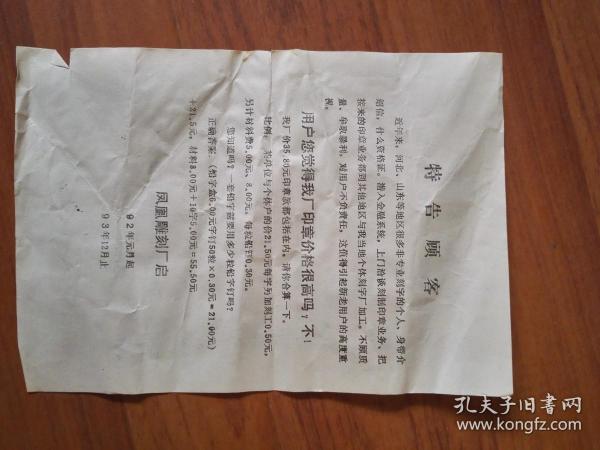 特告顾客
近年来，河北、山东等地区很多非专业刻字的个人，身带介
绍信，什么资格证。潜入金融系统，上门洽谈刻制印章业务、把
接来的印章业务都到其他地区与我当地个体刻字厂加工。不顾质
量、牟取暴利，对用户不负责任，这值得引起新老用户的高度重
视。
用户您觉得我厂印章价格很高吗？不！
我厂价35.80元印章款都包括在内。请你合算一下。
比例，某单位与个体户的价21.50元每字另加刻工0.50元，
另计材料费5.00元、8.00元。每粒铅字0.30元。
您知道吗？一套铅字需要用多少粒铅字钉吗？
正确答案：（铅字盒6.00元字钉50粒×0.30元＝21.00元）
＋21.5元，材料8.00元＋10字5.00元＝55.50元。
凤凰雕刻厂启
92年元月起
93年12月止
孔夫子旧书网
www.kongfz.com